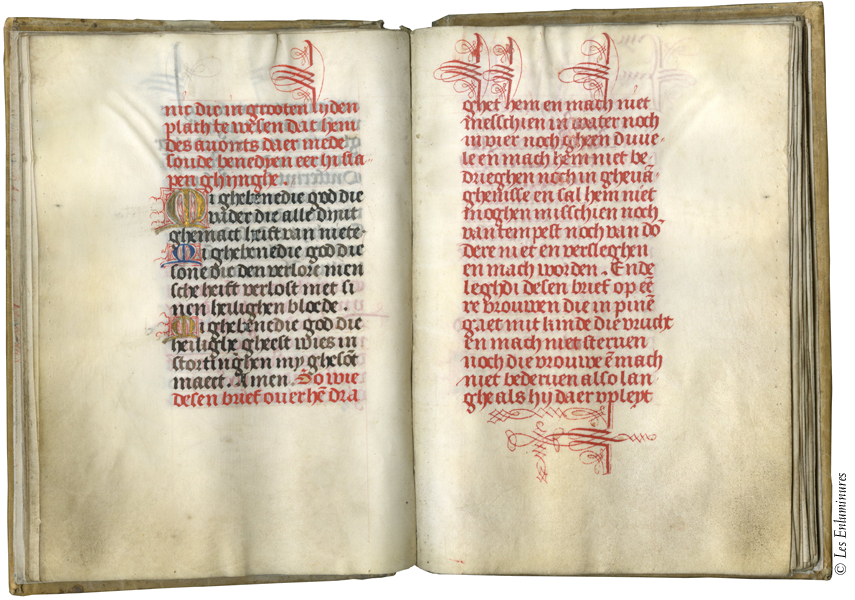 nit die in grooten lijden
plach te wesen dat hem
des auonts daer mede
soude benedyen eer hi sla
pen ghijnghe.
Mi ghebenedie god die
vader die alle dijnt
ghemaect heift van niete.
Mi ghebenedie god die
sone die den verlore men
sche heift verlost met si
nen heilighen bloede.
Mi ghebenedie god die
heilighe gheest wies in
stortinghen my ghesōt
maect. Amen. So wie
desen brief ouer hē dra
ghet hem en mach niet
messchien in water noch
in vier noch gheen duue
le en mach hem niet be
drieghen noch in gheuā
ghenisse en sal hem niet
moghen misschien noch
van tempest noch van dō
dere niet en versleghen
en mach worden. Ende
leghdi desen brief op eē
re vrouwen die in pinē
gaet mit kinde die vrucht
en mach niet steruen
noch die vrouwe ē mach
niet bederuen also lan
ghe als hy daer vpleyt
© Les Enluminures